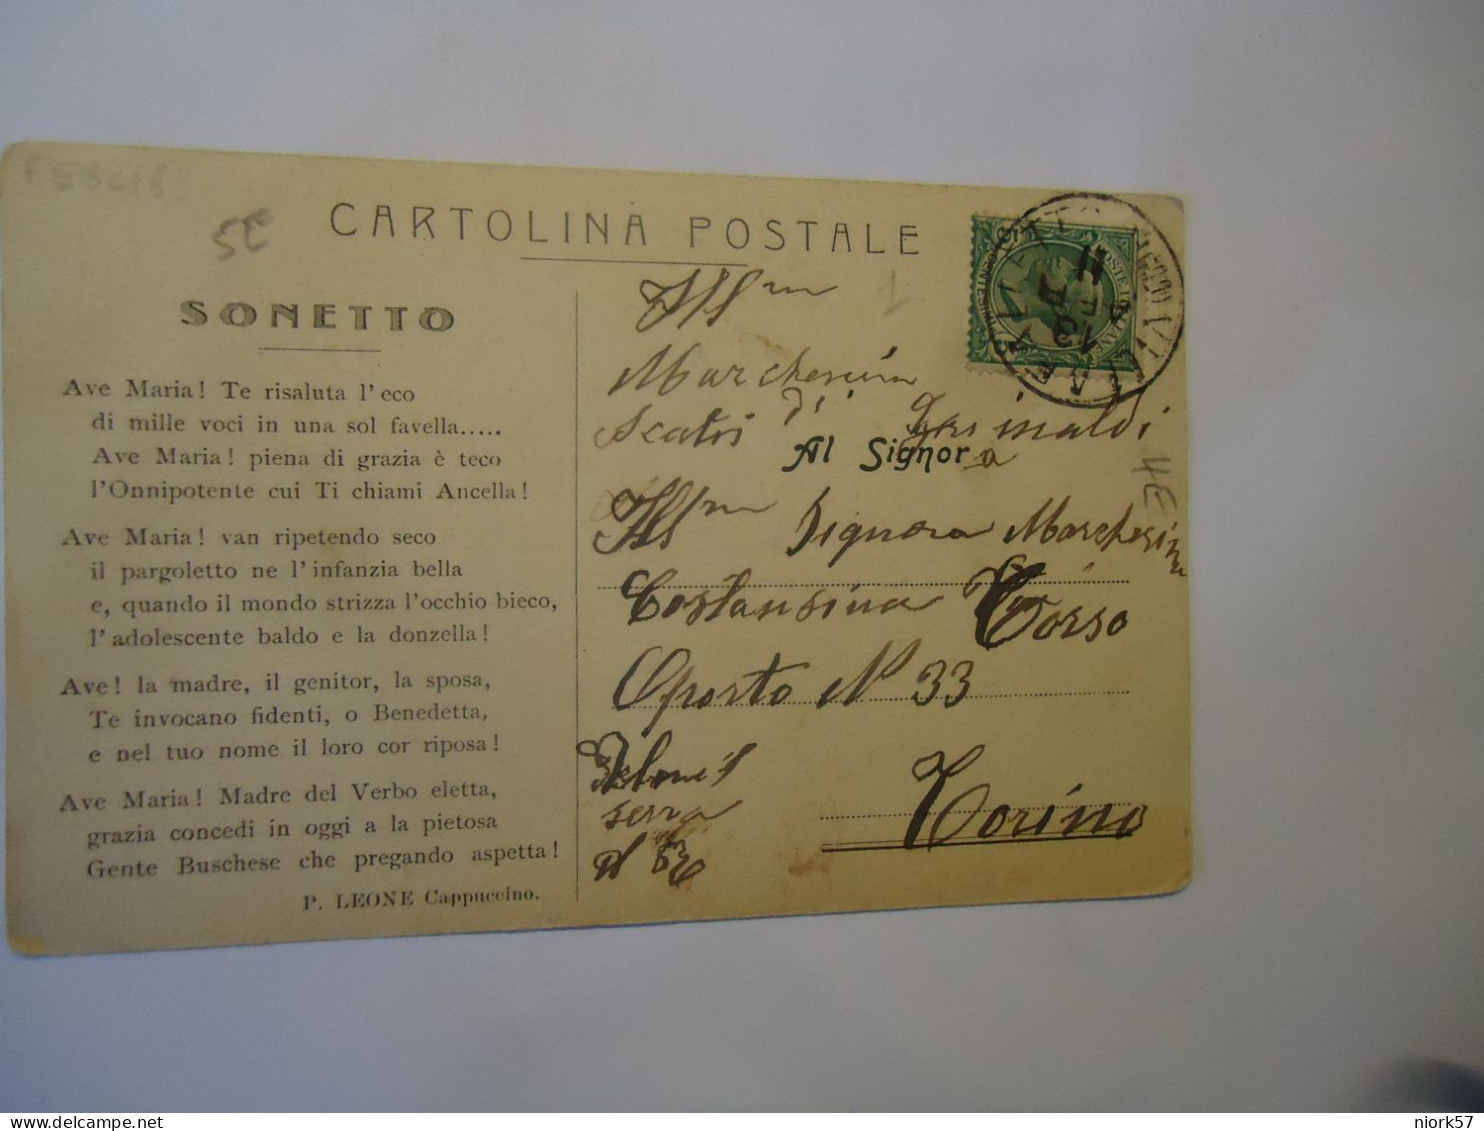 CARTOLINA POSTALE
5E
SONETTO
Ave Maria! Te risaluta l'eco
di mille voci in una sol favella.....
Ave Maria! piena di grazia è teco
l'Onnipotente cui Ti chiami Ancella!
Ave Maria! van ripetendo seco
il pargoletto ne l'infanzia bella
e, quando il mondo strizza l'occhio bieco,
l'adolescente baldo e la donzella!
Ave! la madre, il genitor, la sposa,
Te invocano fidenti, o Benedetta,
e nel tuo nome il loro cor riposa!
Ave Maria! Madre del Verbo eletta,
grazia concedi in oggi a la pietosa
Gente Buschese che pregando aspetta!
P. LEONE Cappuccino.
1
di Grimaldi
Al Signora
Signora Marchesina
Costansina Corso
Oporto N 33
Torino
4E
niork57